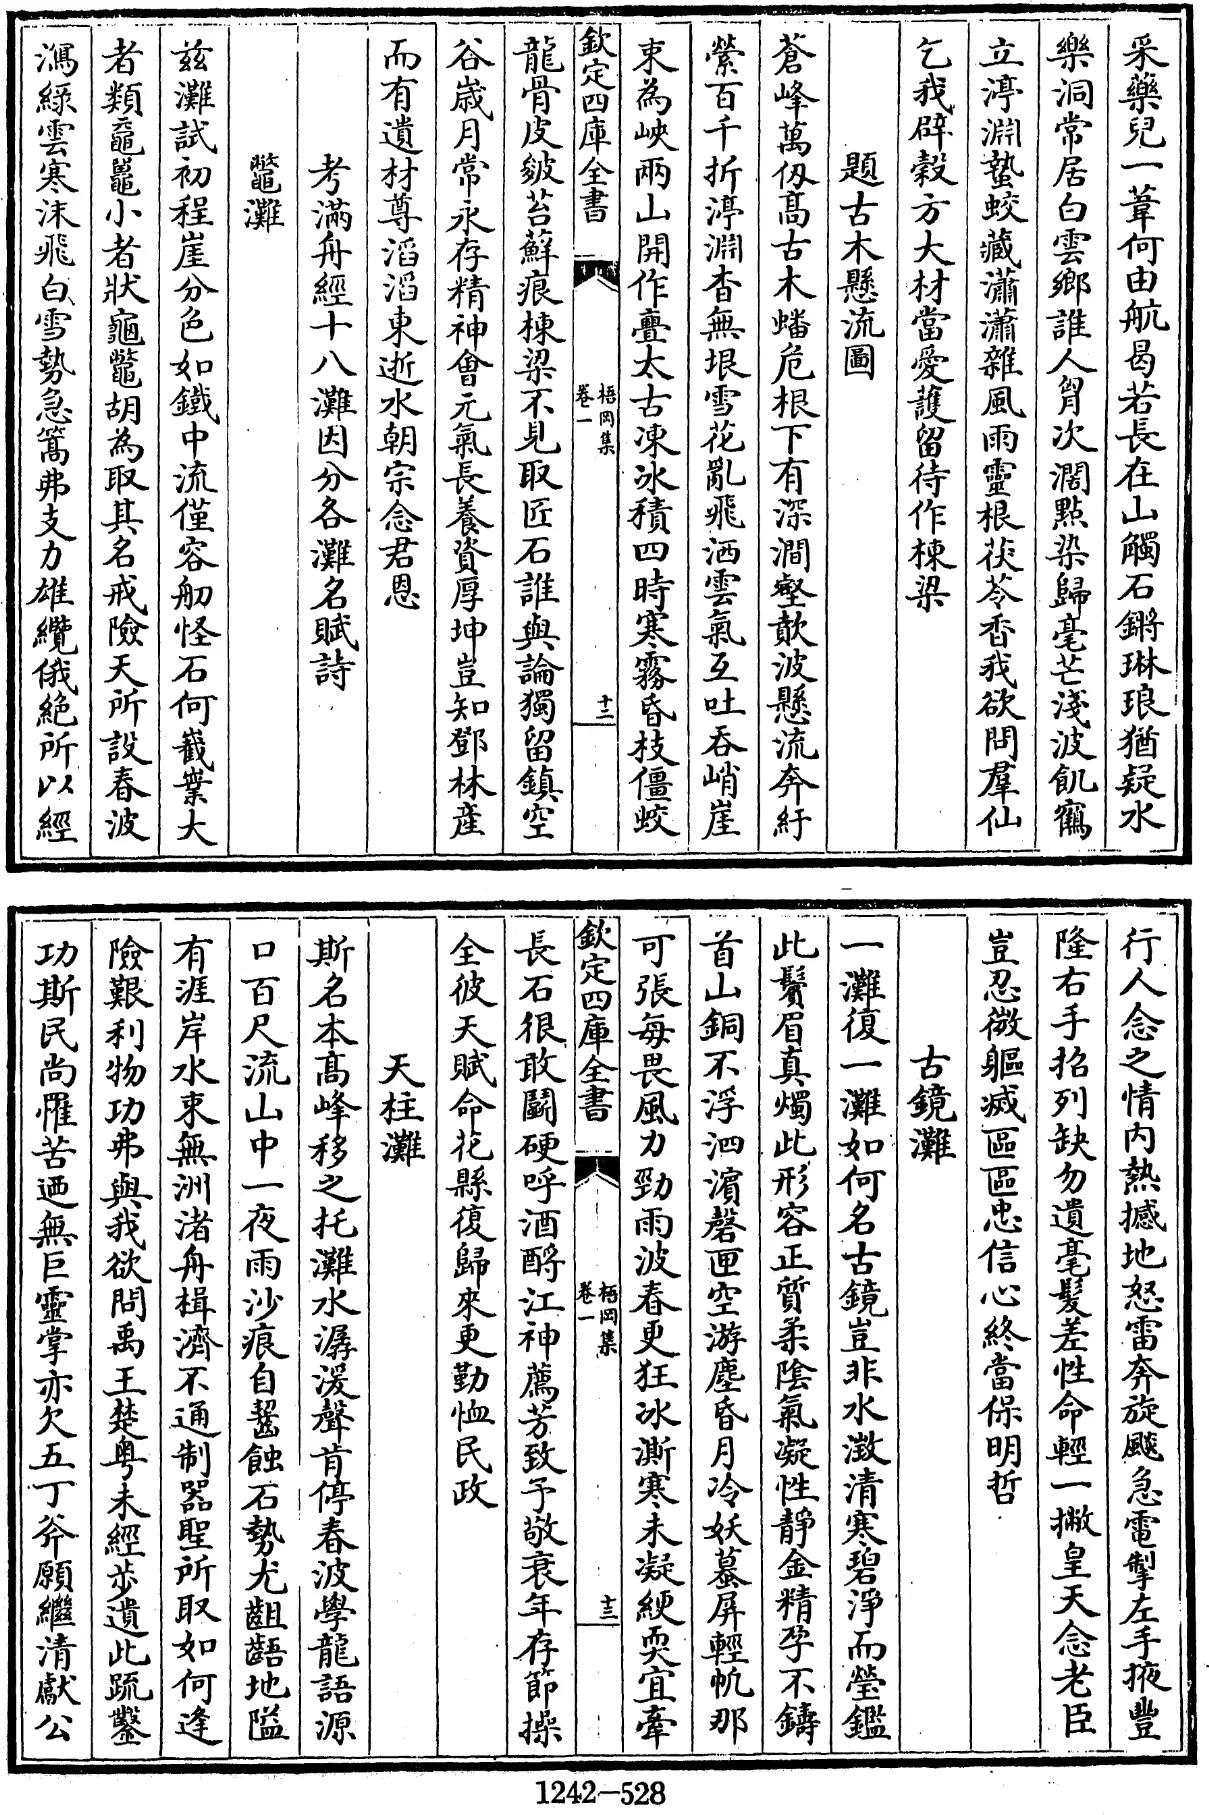 采藥兒一葦何由航曷若長在山觸石鏘琳琅猶疑水
樂洞常居白雲鄉誰人胷次濶點染歸毫芒淺波飢鶴
立渟淵蟄蛟藏瀟瀟雜風雨靈根茯苓香我欲問羣仙
乞我辟穀方大材當愛護留待作棟梁
題古木懸流圖
蒼峰萬仭髙古木蟠危根下有深澗壑歕波懸流奔紆
縈百千折渟淵杳無垠雪花亂飛洒雲氣互吐吞峭崖
束為峽兩山開作亹太古凍氷積四時寒霧昏枝僵蛟
欽定四庫全書
梧岡集
卷一
十二
龍骨皮皴苔蘚痕棟梁不見取匠石誰與論獨留鎮空
谷歳月常永存精神會元氣長養資厚坤豈知鄧林産
而有遺材尊滔滔東逝水朝宗念君恩
考滿舟經十八灘因分各灘名賦詩
鼈灘
兹灘試初程崖分色如鐵中流僅容舠怪石何嶻嶪大
者類黿鼉小者狀龜鼈胡為取其名戒險天所設春波
瀉緑雲寒沫飛白雪勢急篙弗支力雄纜俄絶所以經
行人念之情内熱撼地怒雷奔旋飈急電掣左手掖豐
隆右手招列缺勿遺毫髮差性命輕一撇皇天念老臣
豈忍微軀滅區區忠信心終當保明哲
古鏡灘
一灘復一灘如何名古鏡豈非水澂清寒碧淨而瑩鑑
此鬢眉真燭此形容正質柔陰氣凝性靜金精孕不鑄
首山銅不浮泗濵磬匣空游塵昏月冷妖蟇屏輕帆那
可張每畏風力勁雨波春更狂氷澌寒未凝綆耎宜牽
欽定四庫全書
梧岡集
卷一
十三
長石很敢鬬硬呼酒酹江神薦芳致予敬衰年存節操
全彼天賦命花縣復歸來更勤恤民政
天柱灘
斯名本髙峰移之托灘水潺湲聲肯停春波學龍語源
口百尺流山中一夜雨沙痕自齧蝕石勢尤齟齬地隘
有涯岸水束無洲渚舟楫濟不通制器聖所取如何逢
險艱利物功弗與我欲問禹王楚粤未經歩遺此疏鑿
功斯民尚罹苦迺無巨靈掌亦欠五丁斧願繼清獻公
1242-528